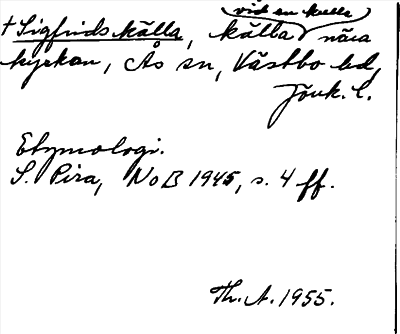 vid en kulle
† Sigfridskälla, källa nära
kyrkan, Ås sn, Västbo hd,
Jönk. l.
Etymologi.
S. Pira, NoB 1945, s. 4 ff.
Th. A. 1955.